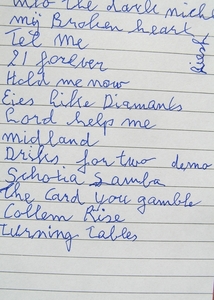 into the dark night
my Broken heart
Tel Me
21 forever
Hold me now
Eies Like Diamants
Lord help me
midland
Driks for two demo
Schotia Samba
The Card you gamble
Collem Rise
Turning Tables